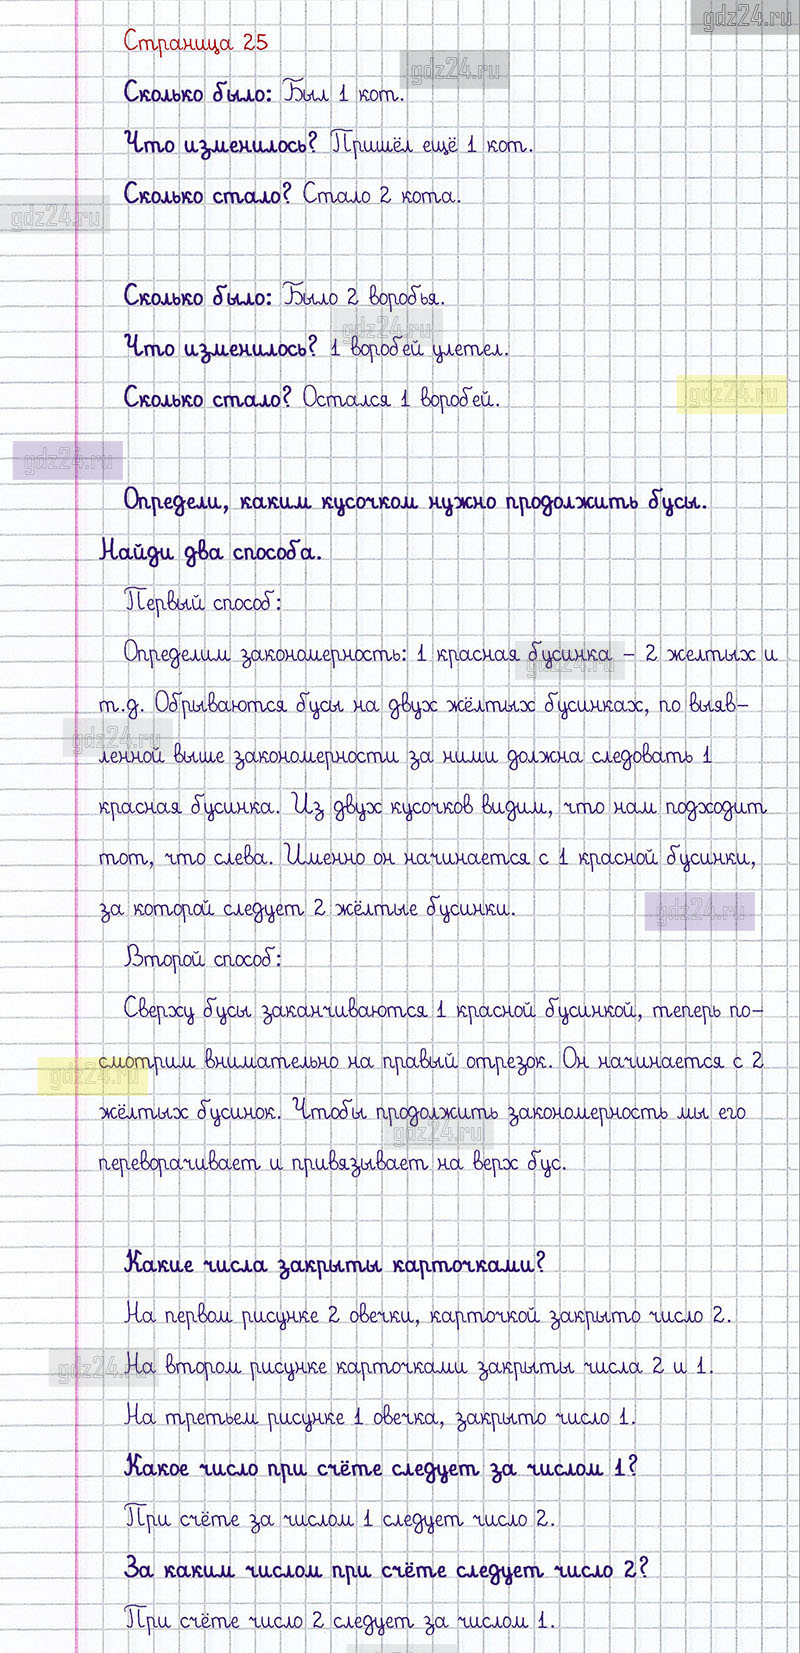 gdz24.ru
Страница 25
gdz24.ru
Сколько было: Был 1 кот.
Что изменилось? Пришёл ещё 1 кот.
Сколько стало? Стало 2 кота.
gdz24.ru
Сколько было: Было 2 воробья.
gdz24.ru
Что изменилось? 1 воробей улетел.
Сколько стало? Остался 1 воробей.
gdz24.ru
gdz24.ru
Определи, каким кусочком нужно продолжить бусы.
Найди два способа.
Первый способ:
Определим закономерность: 1 красная бусинка – 2 желтых и
gdz24.ru
т.д. Обрываются бусы на двух жёлтых бусинках, по выяв-
gdz24.ru
ленной выше закономерности за ними должна следовать 1
красная бусинка. Из двух кусочков видим, что нам подходит
тот, что слева. Именно он начинается с 1 красной бусинки,
за которой следует 2 жёлтые бусинки.
gdz24.ru
Второй способ:
Сверху бусы заканчиваются 1 красной бусинкой, теперь по-
смотрим внимательно на правый отрезок. Он начинается с 2
gdz24.ru
жёлтых бусинок. Чтобы продолжить закономерность мы его
gdz24.ru
переворачивает и привязывает на верх бус.
Какие числа закрыты карточками?
На первом рисунке 2 овечки, карточкой закрыто число 2.
gdz24.ru
На втором рисунке карточками закрыты числа 2 и 1.
На третьем рисунке 1 овечка, закрыто число 1.
Какое число при счёте следует за числом 1?
При счёте за числом 1 следует число 2.
За каким числом при счёте следует число 2?
При счёте число 2 следует за числом 1.